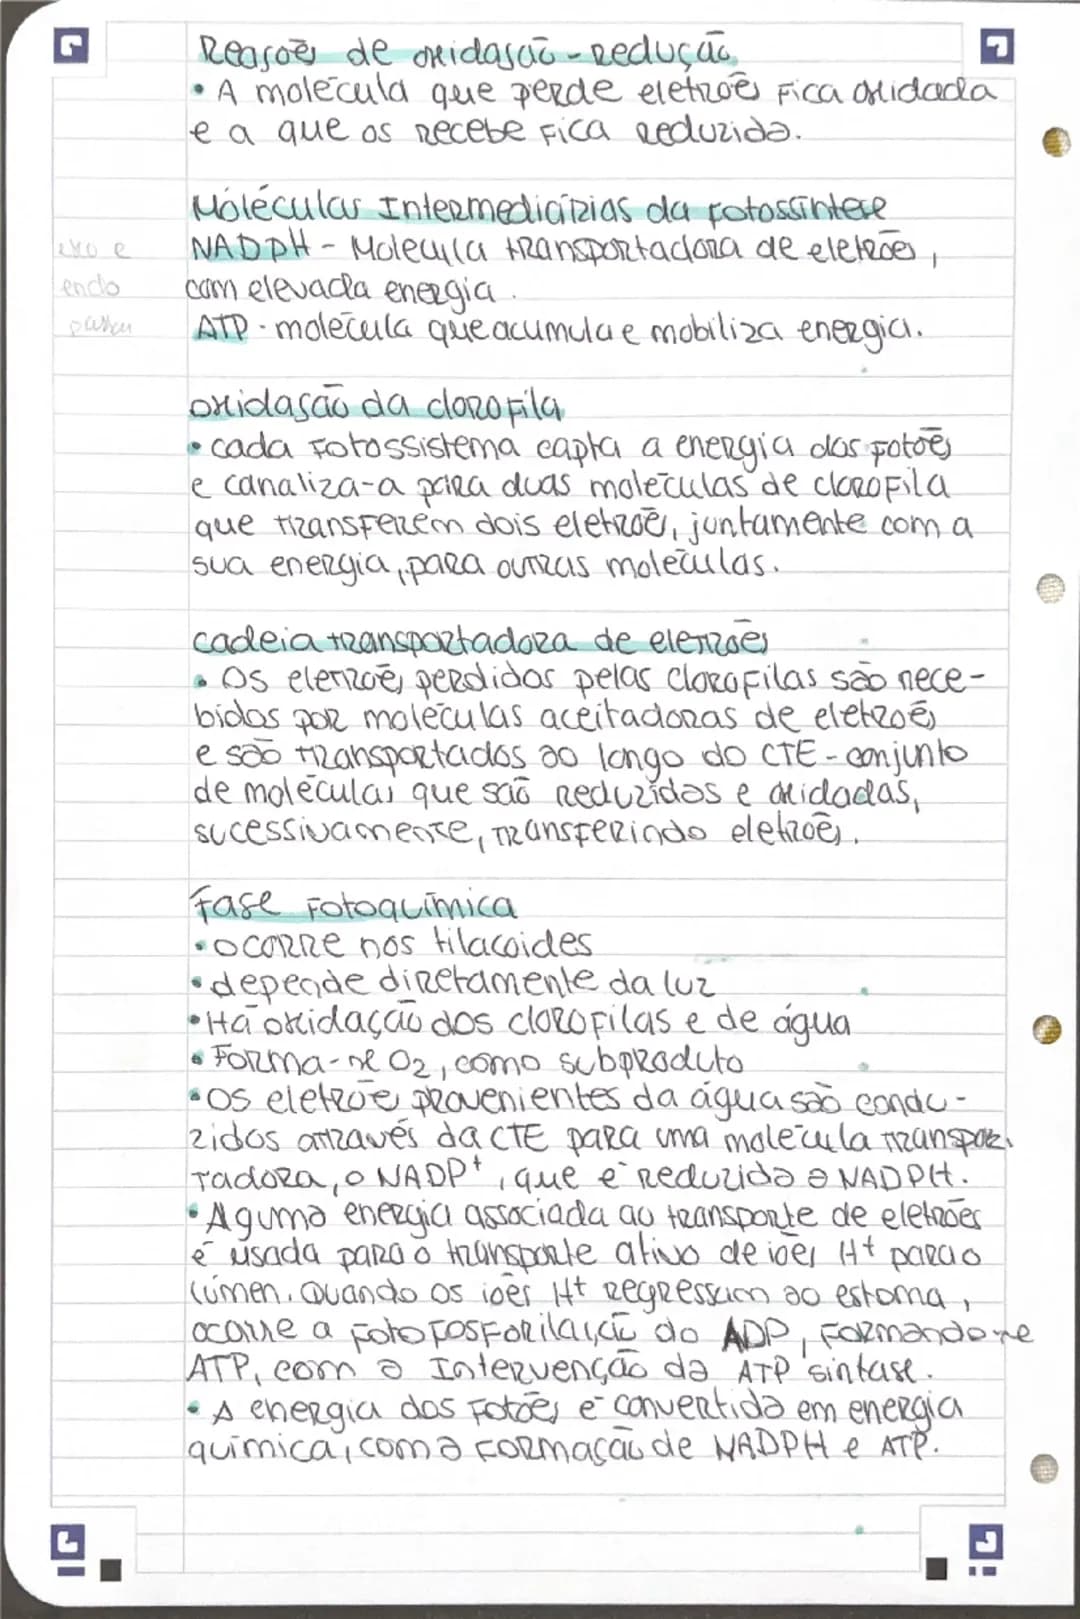 Reações de oxidação-Redução
• A molécula que perde eletrões Fica oxidada
e a que os Recebe Fica Reduzida.
Moléculas Intermediárias da Fotossíntese
NADPH - Molécula transportadora de eletrões,
com elevada energia.
exo e
endo
ATP - molécula que acumula e mobiliza energia.
oxidação da clorofila
• cada Fotossistema capta a energia dos Fotões
e canaliza-a para duas moléculas de clorofila
que transferem dois eletrões, juntamente com a
sua energia, para outras moléculas.
cadeia transportadora de eletrões
• Os eletrões perdidos pelas clorofilas são rece-
bidos por moléculas aceitadoras de eletrões
e são transportados ao longo do CTE - conjunto
de moléculas que são reduzidas e oxidadas,
sucessivamente, transferindo eletrões.
Fase Fotoquímica
• ocorre nos tilacoides
• depende diretamente da luz
• Há oxidação dos clorofilas e de água
• Forma-se O₂, como subproduto
• Os eletrões provenientes da água são condu-
zidos através da CTE para uma molécula transpor-
tadora, o NADP⁺, que é reduzida a NADPH.
• Aguma energia associada ao transporte de eletrões
é usada para o transporte ativo de iões H⁺ para o
lúmen. Quando os iões H⁺ regressam ao estoma,
ocorre a fotofosforilação do ADP, Formando-se
ATP, com a Intervenção da ATP sintase.
• A energia dos Fotões é convertida em energia
química, com a formação de NADPH e ATP.